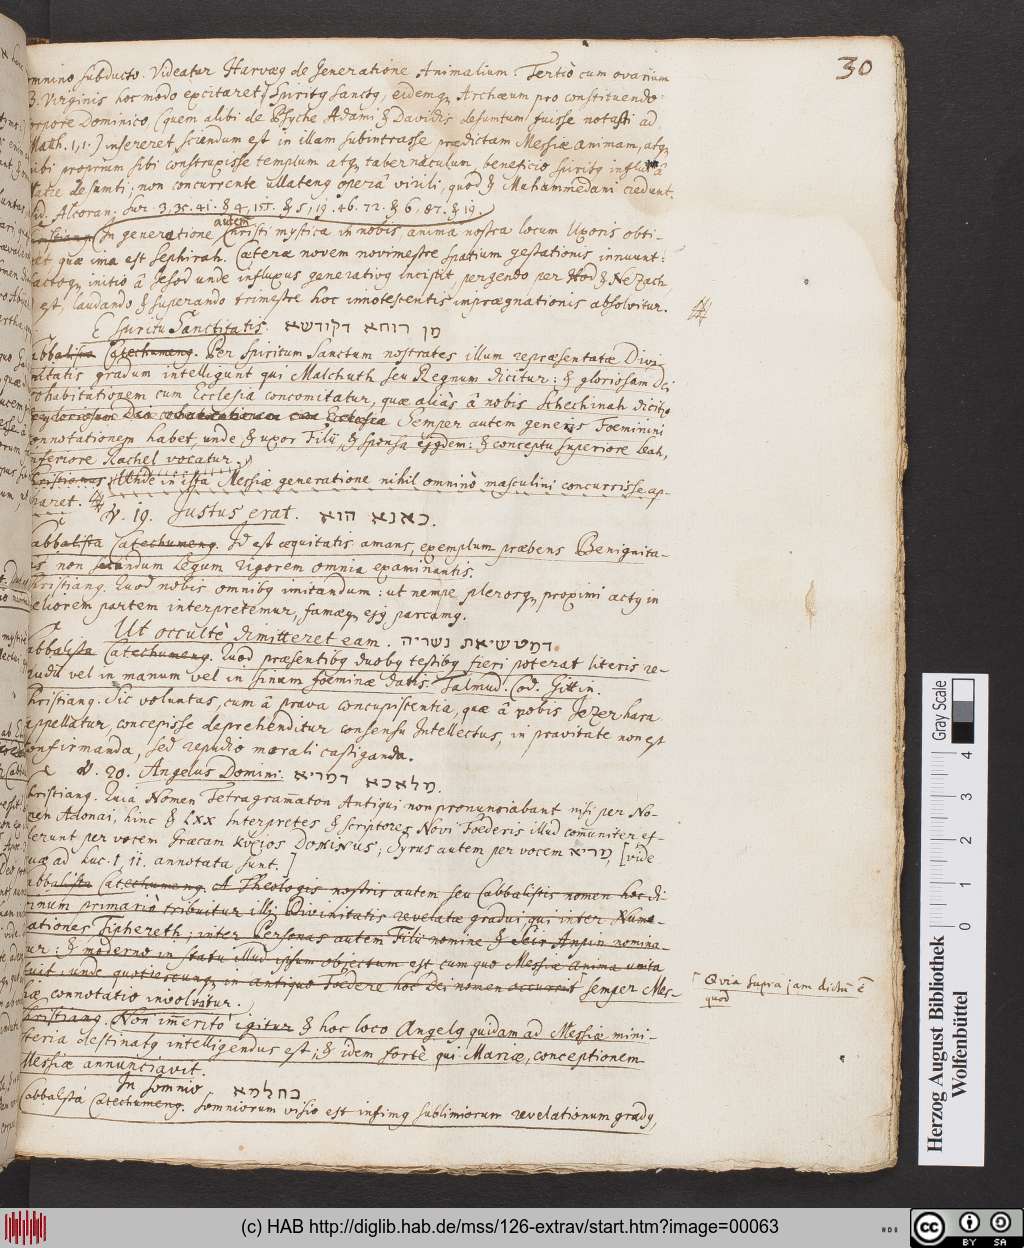 30
omnino subducto. Videatur Harvæg de Generatione Animalium. Tertiò cum ovarium
B. Virginis hoc modo excitaret Spiritg Sanctg, eidemq Archæum pro constituendo
corpore Dominico (quem alibi de Psyche Adami & Davidis desumtum fuisse notasti ad
Matth. 1, 1.) insereret, sciendum est in illam subintrasse prædictam Messiæ animam, atq
sibi proprium sibi construxisse templum atq tabernaculum beneficio Spiritg
desumti; non concurrente ullateng operâ virili, quod & Muhammedani credunt.
vid. Alcoran. Sur. 3, 35. 41. & 4, 155. & 5, 19. 46. 72. & 6, 87. & 19.
Christiang In generatione autem Christi mystica in nobis anima nostra locum Uxoris obti-
net quæ ima est Sephirah. Cæteræ novem novimestre spatium gestationis innuunt:
factoq initiô â Jesod unde influxus generativg incipit, pergendo per Hod & Nezach,
est, laudando & superando trimestre hoc innotescentis imprægnationis absolvitur.
E Spiritu Sanctitatis. מן רוחא דקודשא
Cabbalista Catechumeng. Per Spiritum Sanctum nostrates illum repræsentatæ Divi
nitatis gradum intelligunt qui Malchuth seu Regnum dicitur: & gloriosam Dei
cohabitationem cum Ecclesia concomitatur, quæ aliàs â nobis Schechinah dicitg
gloriosam Dei cohabitationem cum Ecclesia Semper autem generis Foeminini
connotationem habet, unde & uxor Filii, & sponsa ejqdem: & conceptu superiore Leah,
inferiore Rachel vocatur.
Christianus Unde in ista Messiæ generatione nihil omninò masculini concurrisse ap-
paret.
V. 19. Justus erat. כאנא הוא.
Cabbalista Catechumeng. Id est æquitatis amans, exemplum præbens Benignita-
tis non secundum Legum rigorem omnia examinantis.
Christiang. Quod nobis omnibg imitandum: ut nempe plerosq proximi actg in
meliorem partem interpretemur, famæq ejg parcamg.
Ut occultè dimitteret eam. דמטשיאת נשריה
Cabbalista Catechumeng. Quod præsentibg duobg testibg fieri poterat literis re-
pudii vel in manum vel in sinum foeminæ datis. Talmud. Cod. Gittin.
Christiang. Sic voluntas, cum â prava concupiscentia, quæ â nobis Jezer hara
appellatur, concepisse deprehenditur consensu Intellectus, in pravitate non est
confirmanda, sed repudio morali castiganda.
V. 20. Angelus Domini. מלאכא דמריא.
Christiang. Quia Nomen Tetragram̄aton Antiqui non pronunciabant nisi per No-
men Adonai, hinc & LXX Interpretes & Scriptores Novi Foederis illud com̄uniter ef-
ferunt per vocem Græcam Κύριος DOMINUS; Syrus autem per vocem מריא, [vide
quæ ad Luc. 1, 11. annotata sunt.]
Cabbalista Catechumeng. A Theologis nostris autem seu Cabbalistis nomen hoc di
vinum primariò tribuitur illi Divinitatis revelatæ gradui qui inter Nume-
rationes Tiphereth; inter Personas autem Filii nomine & Seir Anpin nomina-
tur: & moderno in statu illud ipsum objectum est cum quo Messiæ anima unita
fuit, unde quotiescunq in antiquo Foedere hoc Dei nomen occurrit semper Mes-
siæ connotatio involvatur.
Qvia supra jam dictū ē
quod
Christiang. Non im̄eritò igitur & hoc loco Angelg quidam ad Messiæ mini-
steria destinatg intelligendus est; & idem fortè qui Mariæ, conceptionem
Messiæ annunciavit.
In somnio בחלמא
Cabbalista Catechumeng. Somniorum visio est infimg sublimiorum revelationum gradg,
Herzog August Bibliothek
Wolfenbüttel
0 1 2 3 4
Gray Scale
(c) HAB http://diglib.hab.de/mss/126-extrav/start.htm?image=00063
HAB
cc BY SA